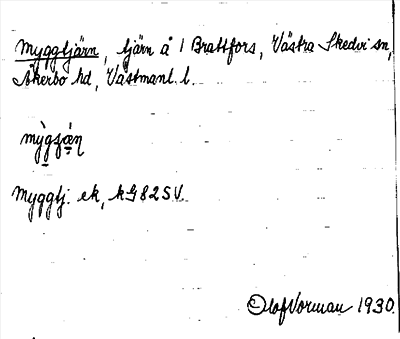 Myggtjärn, tjärn å 1 Brattfors, Västra Skedvi sn,
Åkerbo hd, Västmanl. l.
Myggtj. ek, kG82SV.
Olof Vorman 1930.